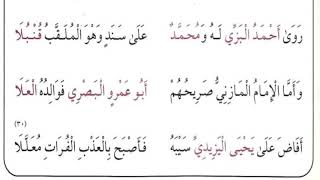 رَوَىٰ أَحْمَدُ الْبَزِّي لَهُ وَمُحَمَّدٌ عَلَىٰ سَنَدٍ وَهْوَ الْمُلَقَّبُ قُنْبُلَا
وَأَمَّا الْإِمَامُ الْمَازِنِيُّ صَرِيحُهُمْ أَبُو عَمْرٍو الْبَصْرِي فَوَالِدُهُ الْعَلَا
(٣٠)
أَفَاضَ عَلَىٰ يَحْيَى الْيَزِيدِيِّ سَيْبَهُ فَأَصْبَحَ بِالْعَذْبِ الْفُرَاتِ مُعَلَّلَا